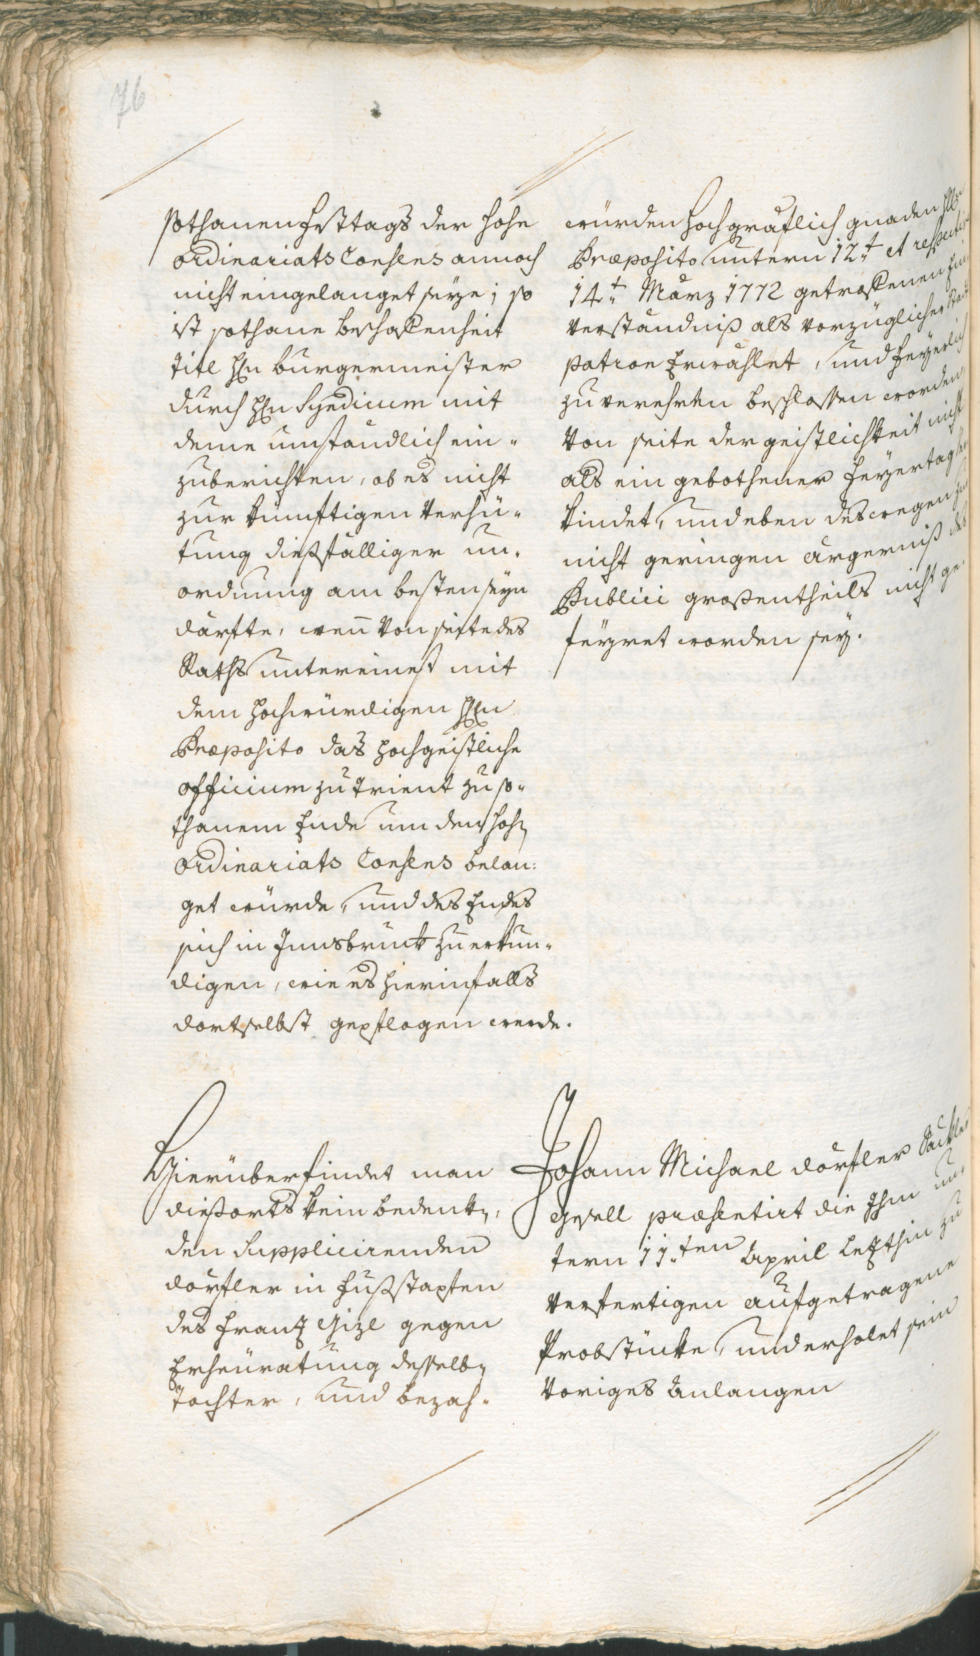 76
sothanen Festtags der hohe
ordinariats Consens annoch
nicht eingelanget seye; so
ist sothane beschaffenheit
titl Hn burgermeister
durch Hn Syndicum mit
deme umständlich ein-
zuberichten, ob es nicht
zur künftigen verhü-
tung dießfälliger un-
ordnung am besten seyn
därfte, wenn von seite des
Raths untereinest mit
dem hochwürdigen Hn
Præposito das hochgeistliche
officium zu Trient zu so-
thanem Ende um den hohen
ordinariats Consens belan-
get würde, und des Endes
sich in Innsbruck zu erkun-
digen, wie es hierinfalls
dortselbst gepflogen werde.
würden hochgräflich gnaden
Præposito untern 12t et respective
14t März 1772 getroffenen Ein-
verständniß als vorzüglicher Stadt
patron Erwählet, und feyerlich
zu verehren beschlossen worden
von seite der geistlichkeit nicht
als ein gebothener feyertag ver-
kindet, und eben deswegen zu
nicht geringen ärgerniß des
Publici großentheils nicht ge-
feyret worden sey.
Hierüber findet man
dießorts kein bedenken,
den Supplicirenden
dörfler in fußstapfen
des Frantz Gizl gegen
Erheüratung desselben
tochter, und bezah-
Johann Michael dörfler Säckler
gesell præsentirt die Ihm un-
tern 11ten April letzthin zu
verfertigen aufgetragene
Probstücke, und erholet sein
voriges Anlangen